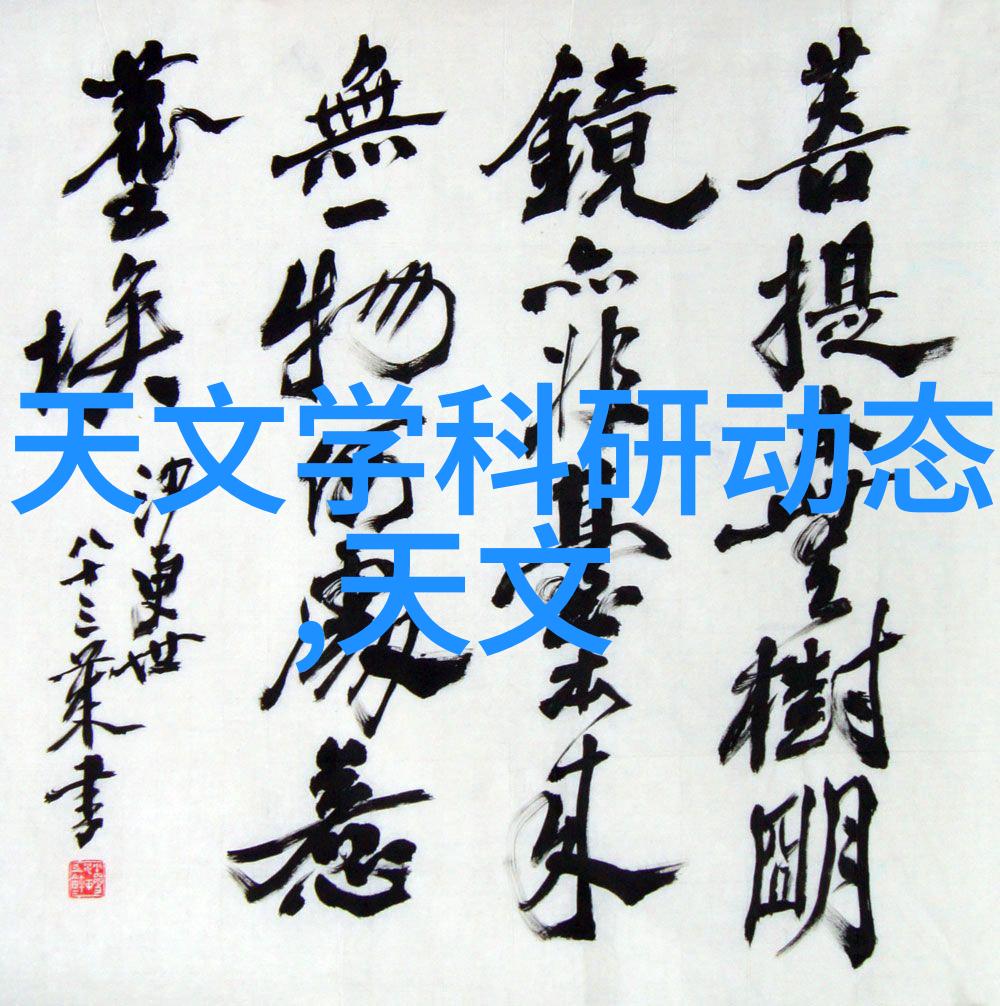 菩提本無樹明
鏡亦非臺本來
無一物何處惹
塵埃
沙更世
八十三 書
天文学科研动态
,天文